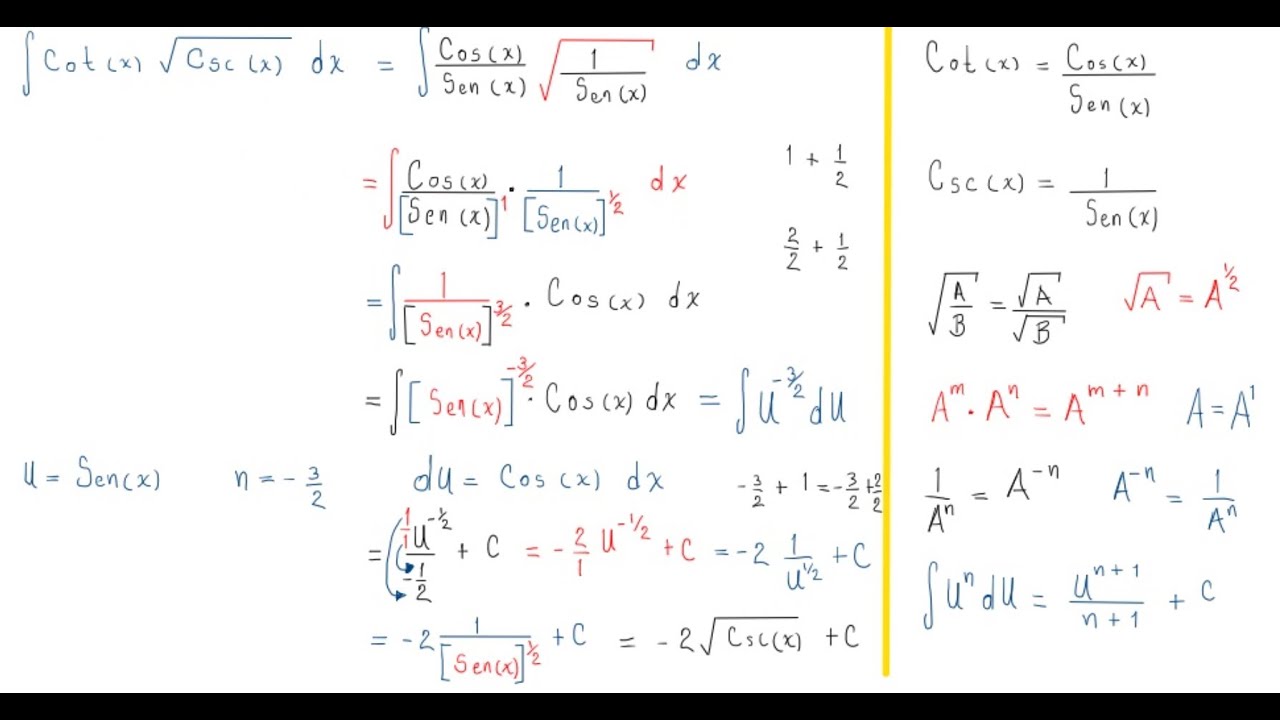 ∫ Cot(x) √(Csc(x)) dx = ∫ Cos(x)/Sen(x) √(1/Sen(x)) dx
= ∫ Cos(x)/[Sen(x)]^1 · 1/[Sen(x)]^(1/2) dx
1 + 1/2
2/2 + 1/2
= ∫ 1/[Sen(x)]^(3/2) · Cos(x) dx
= ∫ [Sen(x)]^(-3/2) · Cos(x) dx = ∫ U^(-3/2) dU
U = Sen(x) n = -3/2 du = Cos(x) dx
-3/2 + 1 = -3/2 + 2/2
= (1/1 U^(-1/2))/(-1/2) + C = -2/1 U^(-1/2) + C = -2 1/U^(1/2) + C
= -2 1/[Sen(x)]^(1/2) + C = -2√(Csc(x)) + C
Cot(x) = Cos(x)/Sen(x)
Csc(x) = 1/Sen(x)
√(A/B) = √A/√B √A = A^(1/2)
A^m · A^n = A^(m+n) A = A^1
1/A^n = A^(-n) A^(-n) = 1/A^n
∫ U^n dU = U^(n+1)/(n+1) + C